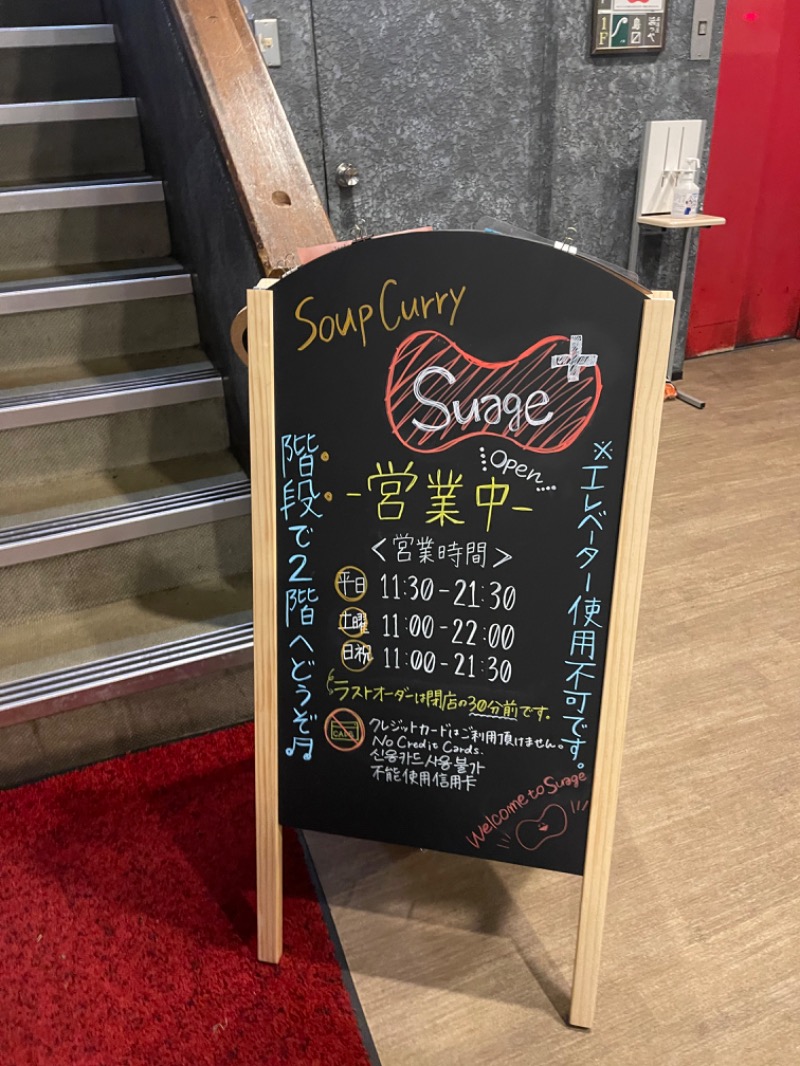 Soup Curry
Suage+
Open
-営業中-
<営業時間>
平日 11:30-21:30
土曜 11:00-22:00
日祝 11:00-21:30
ラストオーダーは閉店の30分前です。
CARD
クレジットカードはご利用頂けません。
No Credit Cards.
신용카드 사용불가
不能使用信用卡
Welcome to Suage
階段で2階へどうぞ♫
※エレベーター使用不可です。
1F